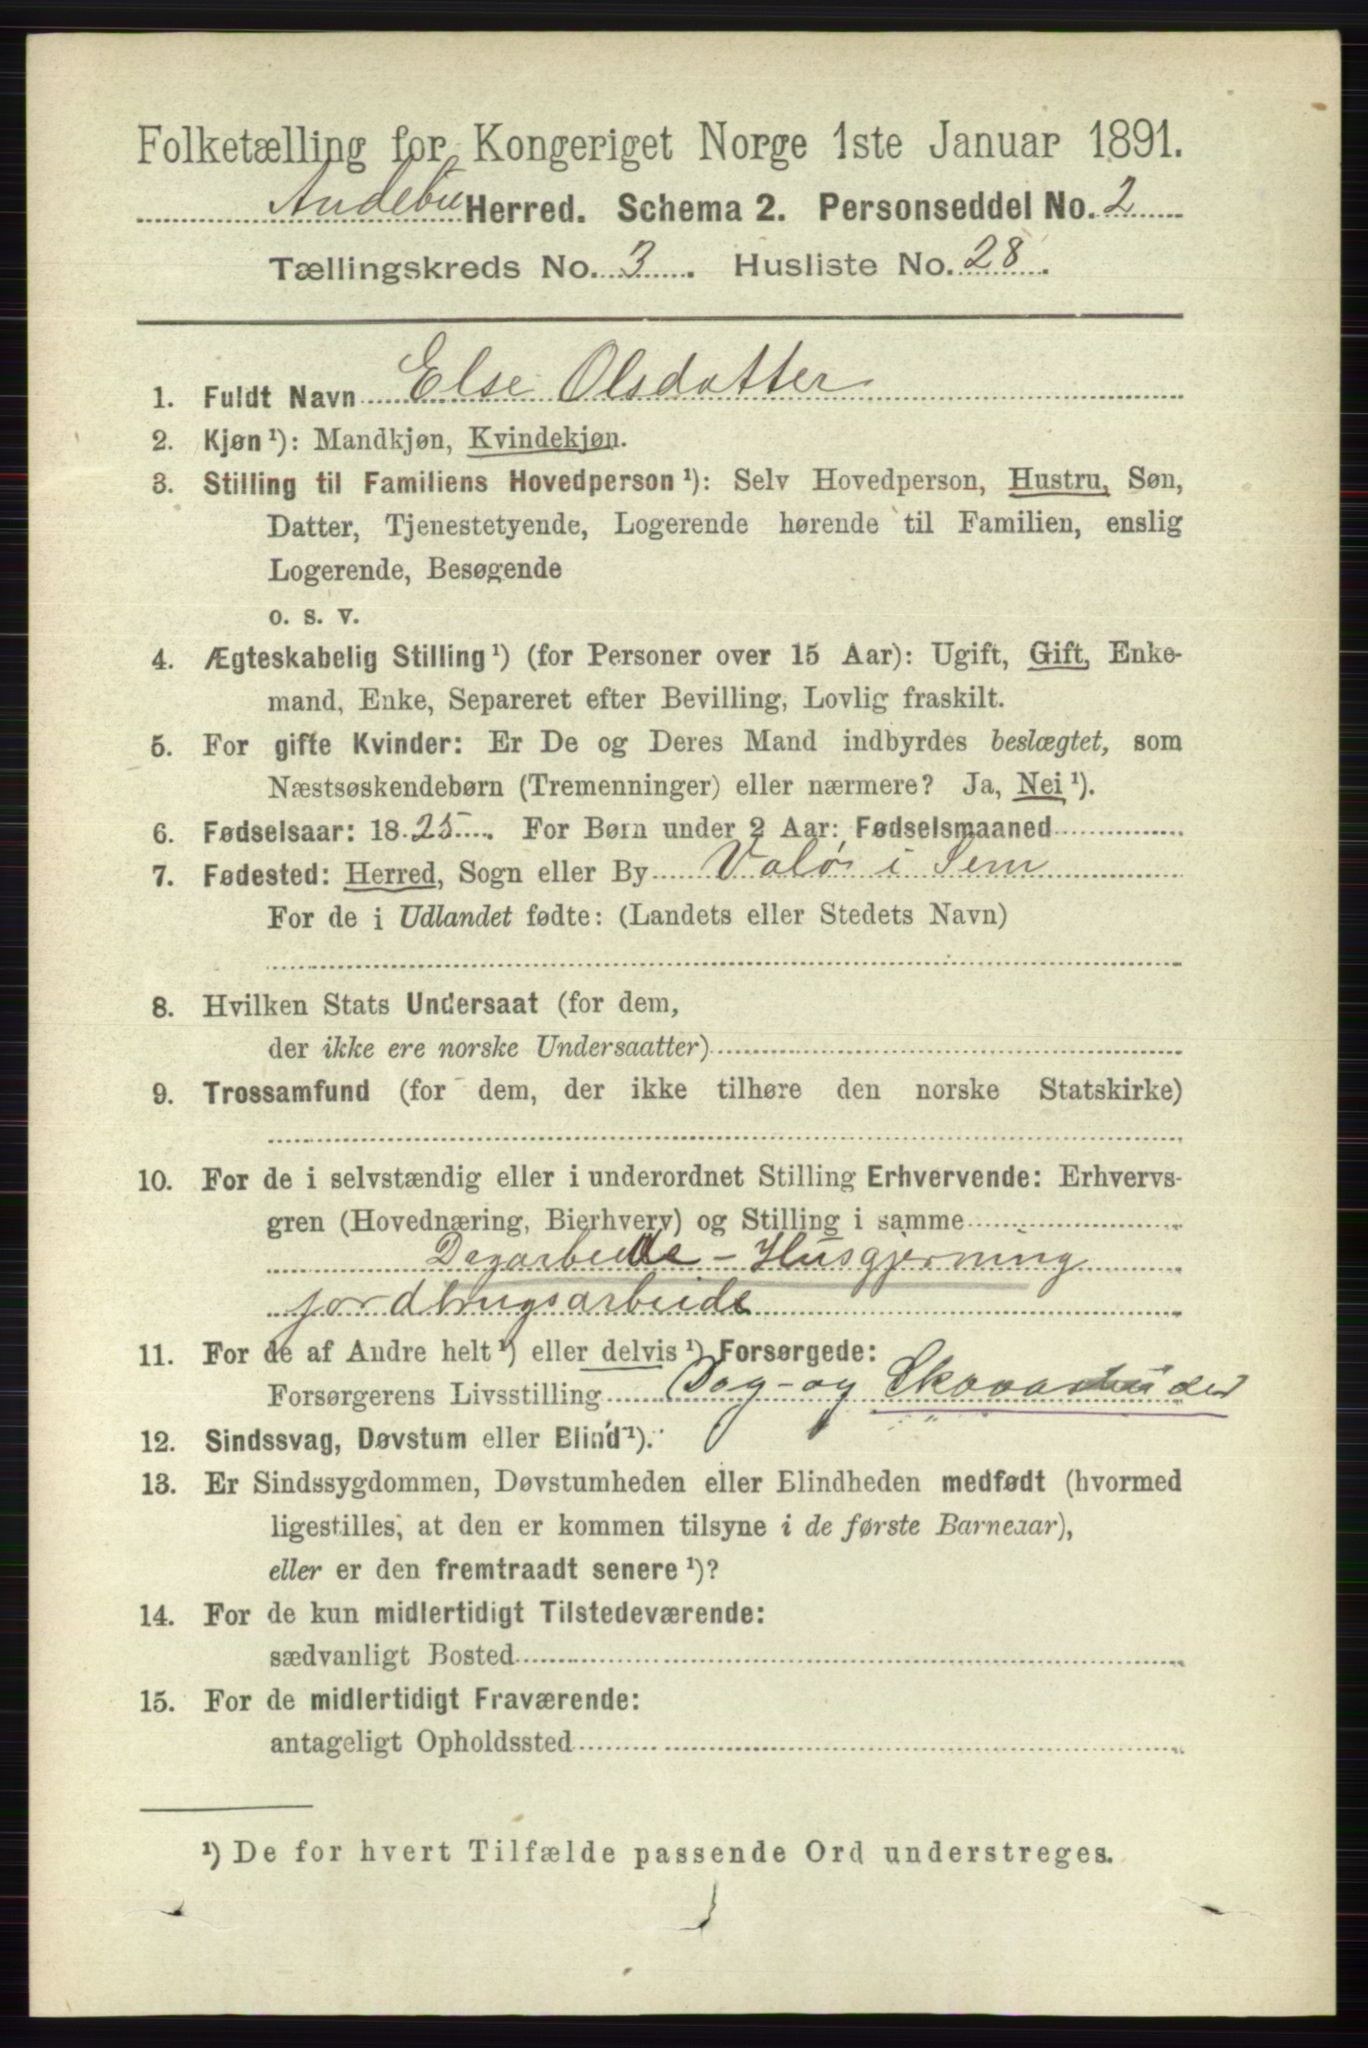 Folketælling for Kongeriget Norge 1ste Januar 1891.
Andebu Herred. Schema 2. Personseddel No. 2
Tællingskreds No. 3. Husliste No. 28.
1. Fuldt Navn Else Olsdatter
2. Kjøn ¹): Mandkjøn, Kvindekjøn.
3. Stilling til Familiens Hovedperson ¹): Selv Hovedperson, Hustru, Søn,
Datter, Tjenestetyende, Logerende hørende til Familien, enslig
Logerende, Besøgende
o. s. v.
4. Ægteskabelig Stilling ¹) (for Personer over 15 Aar): Ugift, Gift, Enke-
mand, Enke, Separeret efter Bevilling, Lovlig fraskilt.
5. For gifte Kvinder: Er De og Deres Mand indbyrdes beslægtet, som
Næstsøskendebørn (Tremenninger) eller nærmere? Ja, Nei ¹).
6. Fødselsaar: 1825. For Børn under 2 Aar: Fødselsmaaned
7. Fødested: Herred, Sogn eller By Valø i Sem
For de i Udlandet fødte: (Landets eller Stedets Navn)
8. Hvilken Stats Undersaat (for dem,
der ikke ere norske Undersaatter)
9. Trossamfund (for dem, der ikke tilhøre den norske Statskirke)
10. For de i selvstændig eller i underordnet Stilling Erhvervende: Erhvervs-
gren (Hovednæring, Bierhverv) og Stilling i samme
Dagarbeide - Husgjerning
jordbrugsarbeide
11. For de af Andre helt ¹) eller delvis ¹) Forsørgede:
Forsørgerens Livsstilling Dag- og Skovarbeider
12. Sindssvag, Døvstum eller Blind ¹).
13. Er Sindssygdommen, Døvstumheden eller Blindheden medfødt (hvormed
ligestilles, at den er kommen tilsyne i de første Barneaar),
eller er den fremtraadt senere ¹)?
14. For de kun midlertidigt Tilstedeværende:
sædvanligt Bosted
15. For de midlertidigt Fraværende:
antageligt Opholdssted
¹) De for hvert Tilfælde passende Ord understreges.